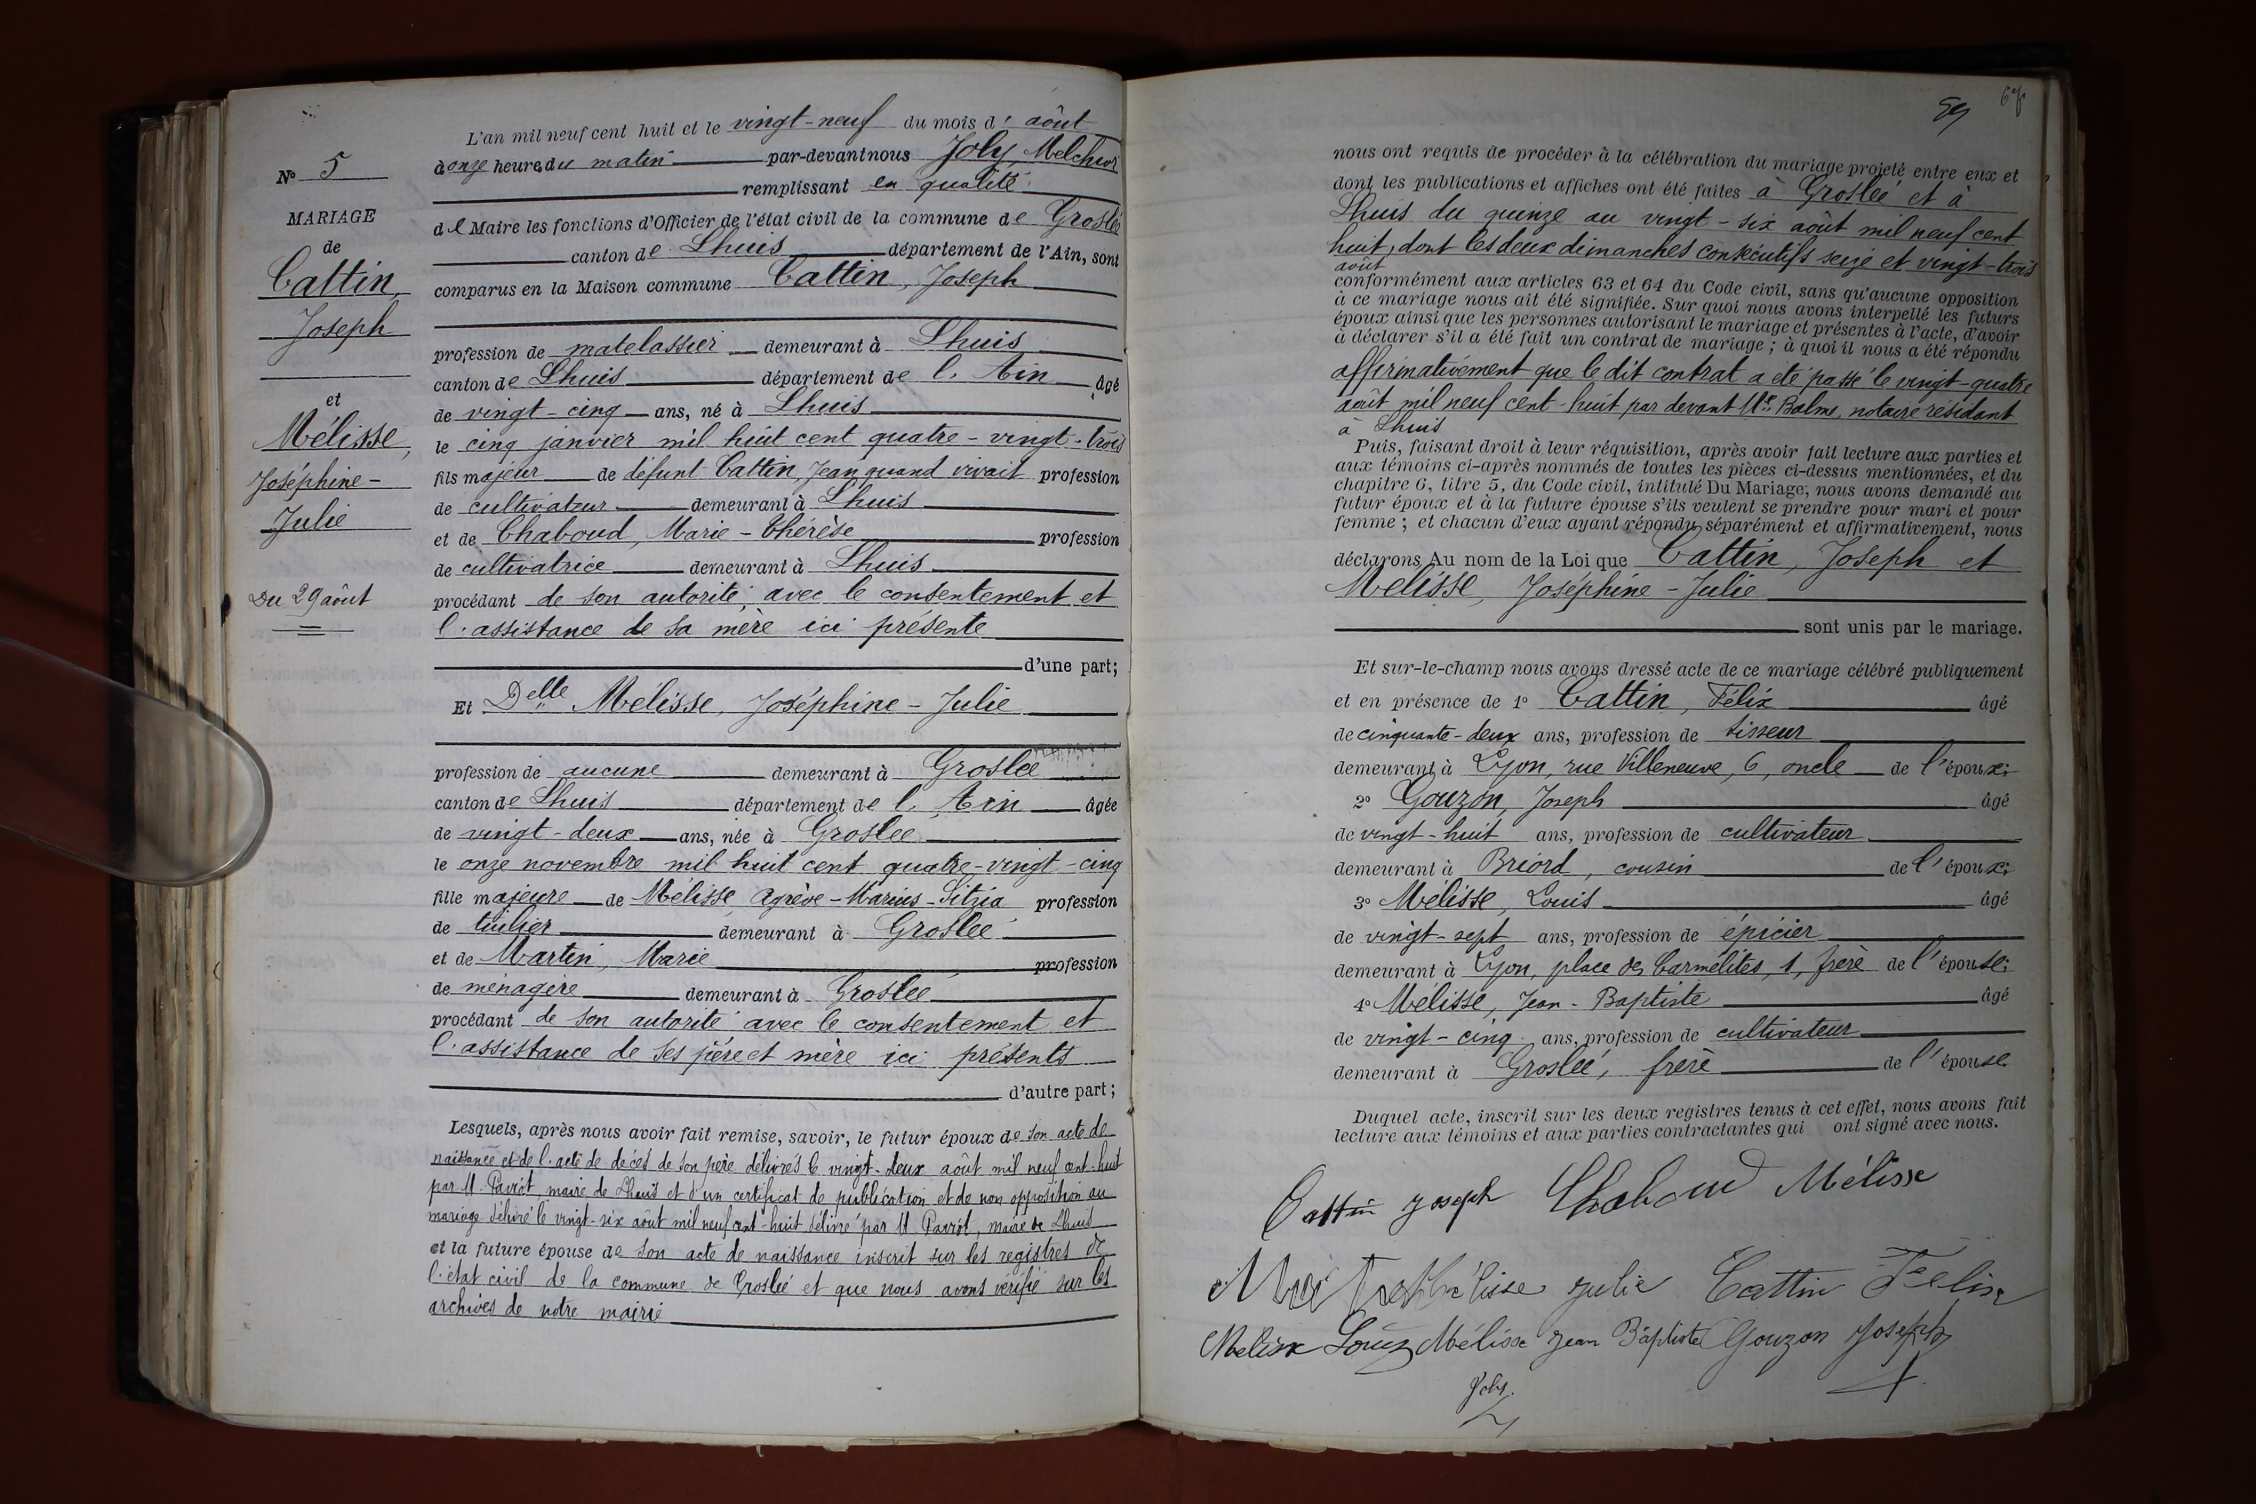 N° 5
MARIAGE
de
Cattin,
Joseph
et
Mélisse,
Joséphine-
Julie
Du 29 août
L'an mil neuf cent huit et le vingt-neuf du mois d' août
à onze heure du matin par-devant nous Joly, Melchior
remplissant en qualité
de Maire les fonctions d'Officier de l'état civil de la commune de Groslée
canton de Lhuis département de l'Ain, sont
comparus en la Maison commune Cattin, Joseph
profession de matelassier demeurant à Lhuis
canton de Lhuis département de l'Ain âgé
de vingt-cinq ans, né à Lhuis
le cinq janvier mil huit cent quatre-vingt-trois
fils majeur de défunt Cattin, Jean quand vivait profession
de cultivateur demeurant à Lhuis
et de Chaboud, Marie-Thérèse profession
de cultivatrice demeurant à Lhuis
procédant de son autorité, avec le consentement et
l'assistance de sa mère ici présente
d'une part;
Et Delle Mélisse, Joséphine-Julie
profession de aucune demeurant à Groslée
canton de Lhuis département de l'Ain âgée
de vingt-deux ans, née à Groslée
le onze novembre mil huit cent quatre-vingt-cinq
fille majeure de Mélisse Agrève-Marius- profession
de tuilier demeurant à Groslée
et de Martin, Marie profession
de ménagère demeurant à Groslée
procédant de son autorité avec le consentement et
l'assistance de ses père et mère ici présents
d'autre part;
Lesquels, après nous avoir fait remise, savoir, le futur époux de son acte de
naissance et de l'acte de décès de son père délivrés le vingt-deux août mil neuf cent-huit
par M. maire de Lhuis et d'un certificat de publication et de non opposition au
mariage délivré le vingt-six août mil neuf cent-huit délivré par M. maire de Lhuis
et la future épouse de son acte de naissance inscrit sur les registres de
l'état civil de la commune de Groslée et que nous avons vérifié sur les
archives de notre mairie
59 67
nous ont requis de procéder à la célébration du mariage projeté entre eux et
dont les publications et affiches ont été faites à Groslée et à
Lhuis du quinze au vingt-six août mil neuf cent
huit, dont les deux dimanches consécutifs seize et vingt-trois
août
conformément aux articles 63 et 64 du Code civil, sans qu'aucune opposition
à ce mariage nous ait été signifiée. Sur quoi nous avons interpellé les futurs
époux ainsi que les personnes autorisant le mariage et présentes à l'acte, d'avoir
à déclarer s'il a été fait un contrat de mariage; à quoi il nous a été répondu
affirmativement que le dit contrat a été passé le vingt-quatre
août mil neuf cent huit par devant Me Balme, notaire résidant
à Lhuis
Puis, faisant droit à leur réquisition, après avoir fait lecture aux parties et
aux témoins ci-après nommés de toutes les pièces ci-dessus mentionnées, et du
chapitre 6, titre 5, du Code civil, intitulé Du Mariage, nous avons demandé au
futur époux et à la future épouse s'ils veulent se prendre pour mari et pour
femme; et chacun d'eux ayant répondu séparément et affirmativement, nous
déclarons Au nom de la Loi que Cattin, Joseph et
Mélisse, Joséphine-Julie
sont unis par le mariage.
Et sur-le-champ nous avons dressé acte de ce mariage célébré publiquement
et en présence de 1° Cattin, Félix âgé
de cinquante-deux ans, profession de tisseur
demeurant à Lyon, rue Villeneuve, 6, oncle de l'époux;
2° Gouzon, Joseph âgé
de vingt-huit ans, profession de cultivateur
demeurant à Briord, cousin de l'époux;
3° Mélisse, Louis âgé
de vingt-sept ans, profession de épicier
demeurant à Lyon, place des Carmélites, 1, frère de l'épouse;
4° Mélisse, Jean-Baptiste âgé
de vingt-cinq ans, profession de cultivateur
demeurant à Groslée, frère de l'épouse
Duquel acte, inscrit sur les deux registres tenus à cet effet, nous avons fait
lecture aux témoins et aux parties contractantes qui ont signé avec nous.
Cattin Joseph Chaboud Mélisse
Mélisse Julie Cattin Félix
Mélisse Louis Mélisse Jean Baptiste Gouzon Joseph
Joly